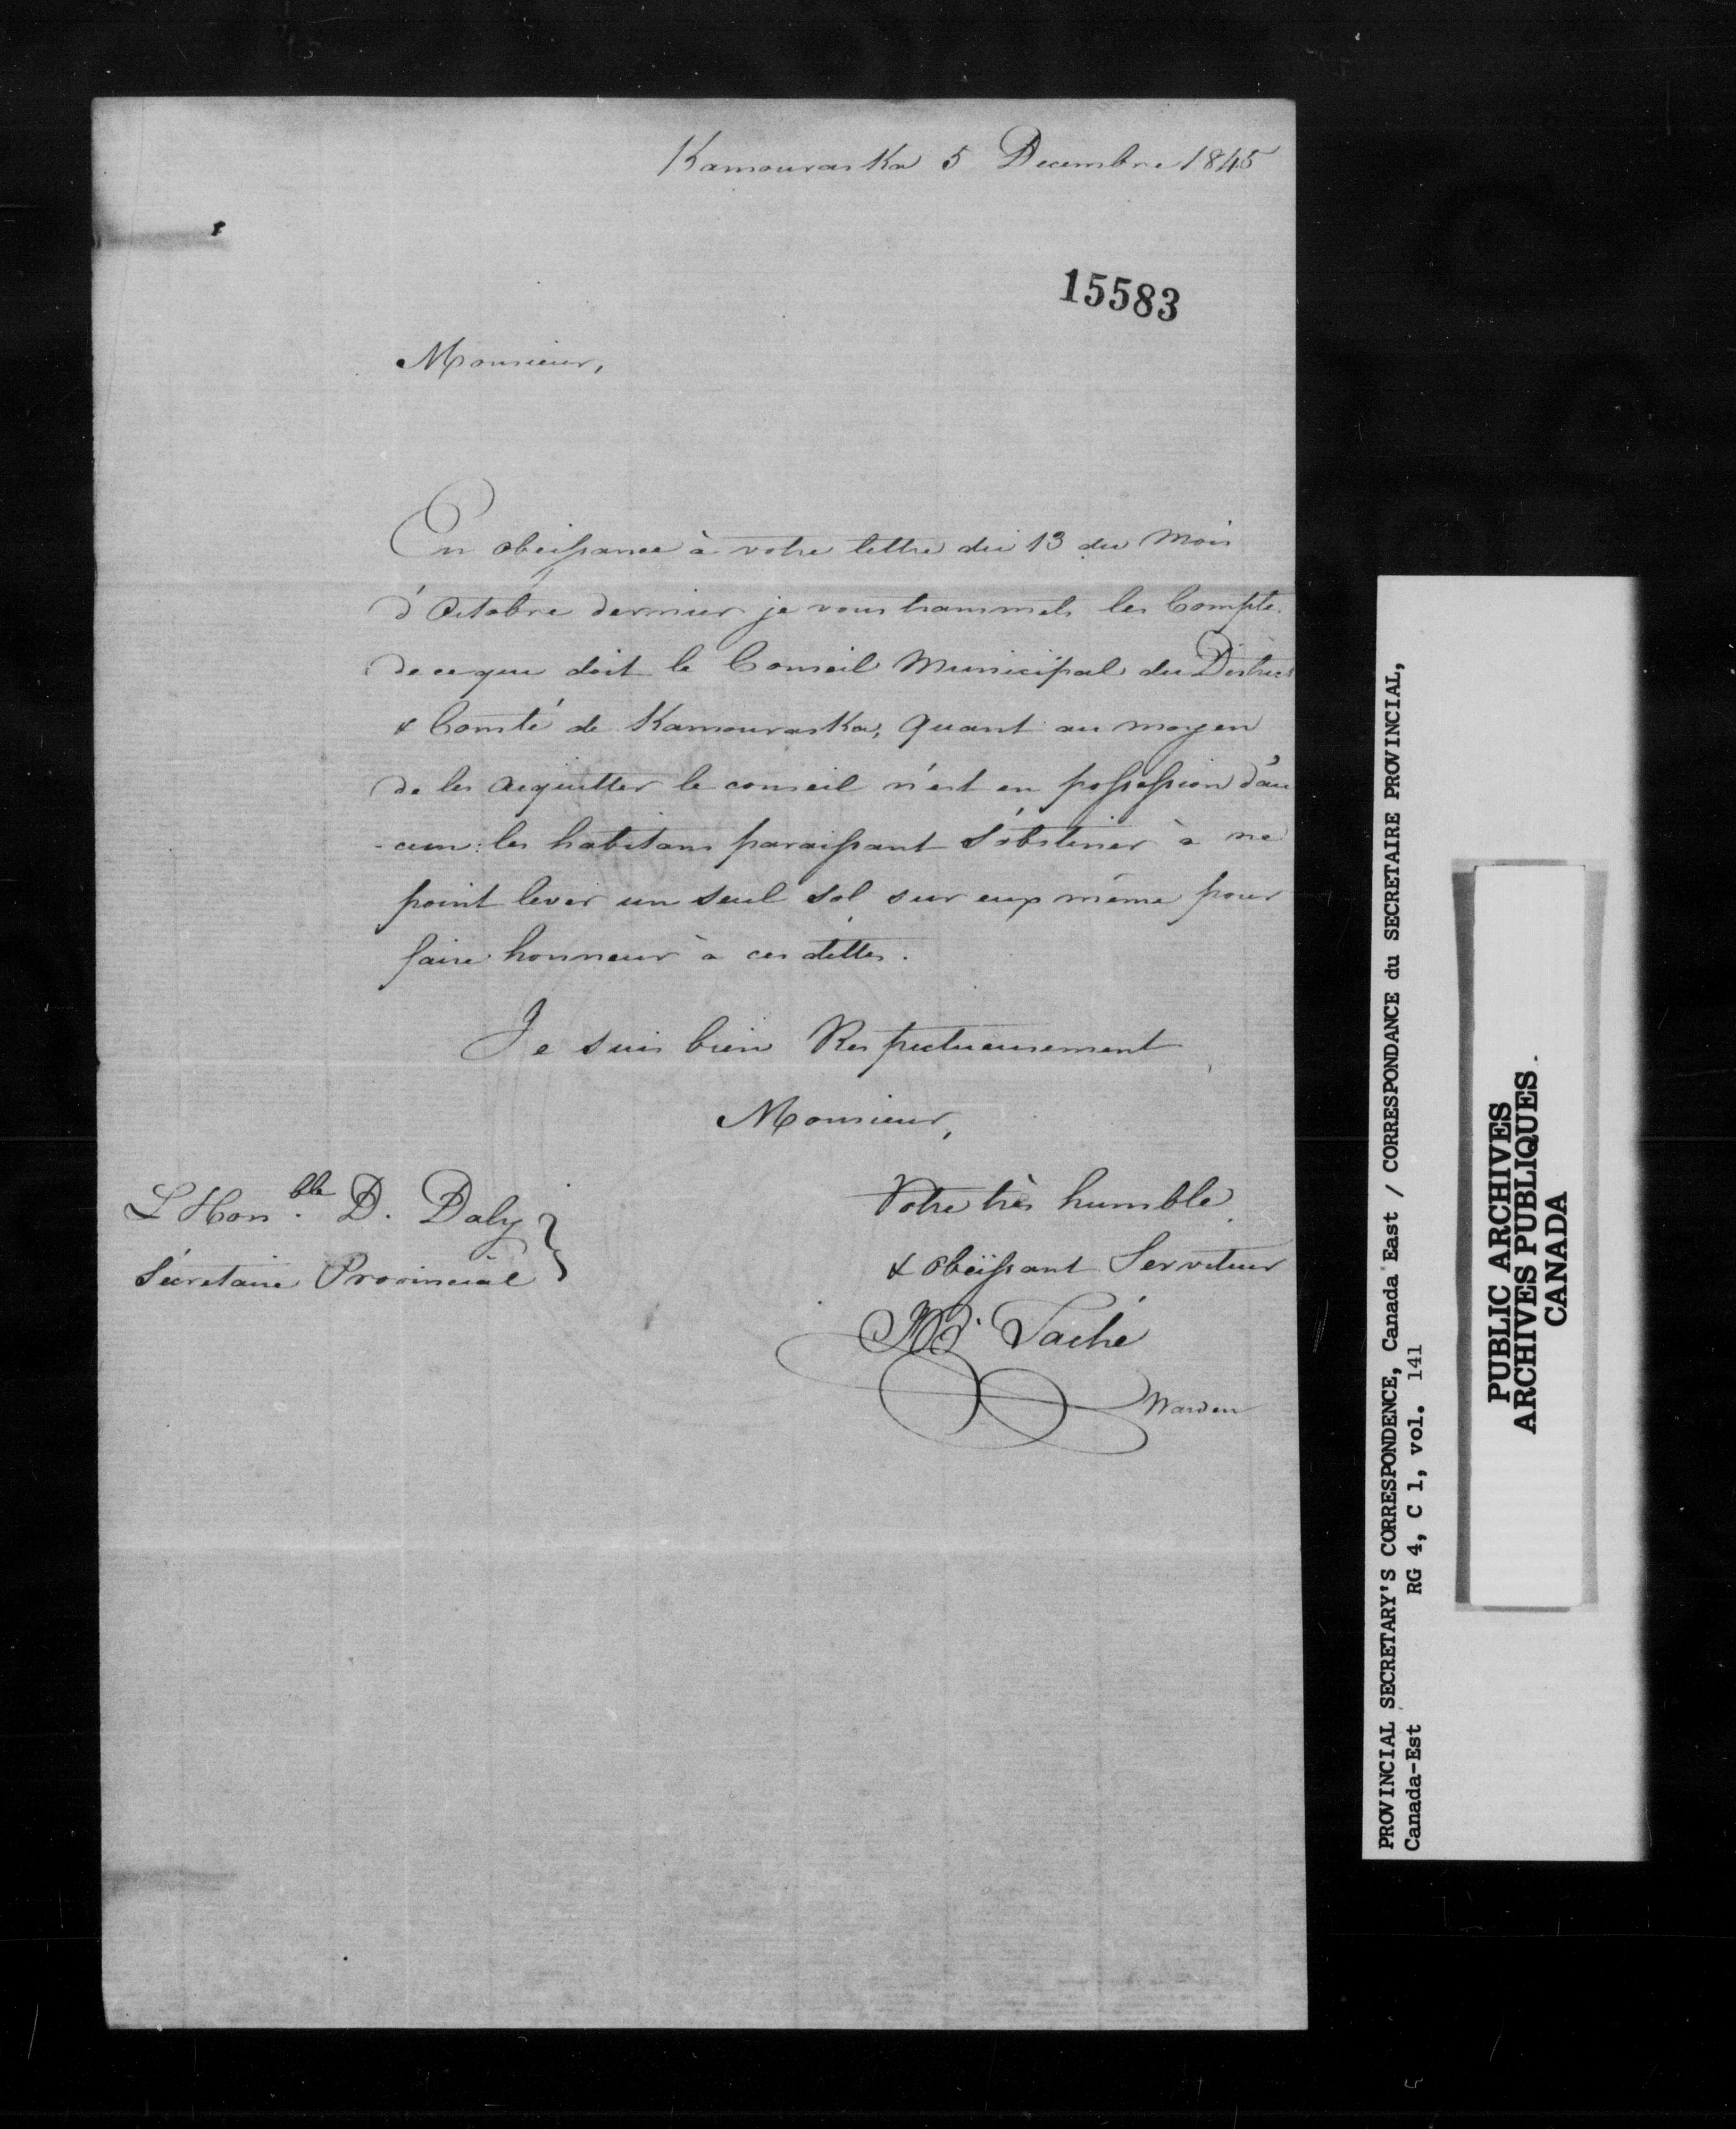 Kamouraska 5 Decembre 1845
15583
Monsieur,
En obeissance à votre lettre du 13 du Mois
d'Octobre dernier je vous transmets les Comptes
de ce que doit le Conseil Municipal du District
& Comté de Kamouraska, quant au moyen
de les acquitter le conseil n'est en possession d'au
-cun: les habitans paraissant s'obstiner à ne
point lever un seul sol sur eux même pour
faire honneur à ces dettes.
Je suis bien Respectueusement
Monsieur,
Votre très humble
& obéissant Serviteur
Taché
Warden
L'Honble. D. Daly
Sécretaire Provincial
PROVINCIAL SECRETARY'S CORRESPONDENCE, Canada East / CORRESPONDANCE du SECRETAIRE PROVINCIAL,
Canada-Est RG 4, C 1, vol. 141
PUBLIC ARCHIVES
ARCHIVES PUBLIQUES
CANADA